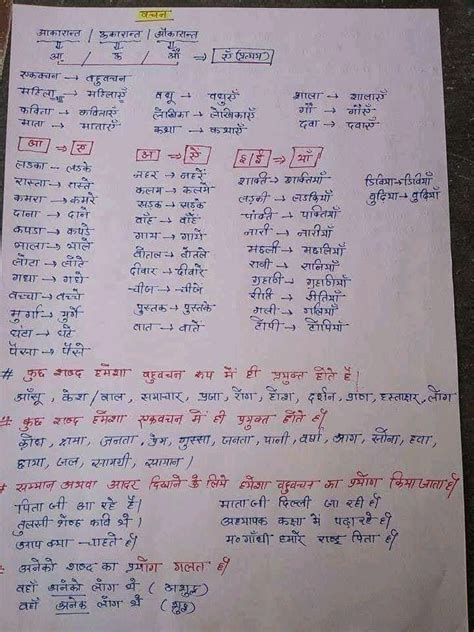 वचन
आकारान्त / ऊकारान्त / औकारान्त
आ / ऊ / औ → एँ (प्रत्यय)
एकवचन → बहुवचन
महिला → महिलाएँ वधू → वधुएँ शाला → शालाएँ
कविता → कविताएँ लेखिका → लेखिकाएँ गौ → गौएँ
माता → माताएँ कथा → कथाएँ दवा → दवाएँ
आ ⇒ ए अ ⇒ एँ इ/ई ⇒ याँ
लड़का → लड़के नहर → नहरें शक्ति → शक्तियाँ डिबिया → डिबियाँ
रास्ता → रास्ते कलम → कलमें लड़की → लड़कियाँ बुढ़िया → बुढ़ियाँ
कमरा → कमरे सड़क → सड़कें पंक्ति → पंक्तियाँ
दाना → दाने बाँह → बाँहें नारी → नारियाँ
कपड़ा → कपड़े गाय → गायें मछली → मछलियाँ
भाला → भाले बोतल → बोतलें रानी → रानियाँ
लोटा → लोटे दीवार → दीवारें गृहणी → गृहणियाँ
गधा → गधे चीज → चीजें रीति → रीतियाँ
बच्चा → बच्चे पुस्तक → पुस्तकें गली → गलियाँ
मुर्गा → मुर्गे बात → बातें टोपी → टोपियाँ
घंटा → घंटे
पैसा → पैसे
# कुछ शब्द हमेशा बहुवचन रूप में ही प्रयुक्त होते हैं।
आँसू, केश/बाल, समाचार, प्रजा, रोग, होश, दर्शन, प्राण, हस्ताक्षर, लोग
# कुछ शब्द हमेशा एकवचन में ही प्रयुक्त होते हैं।
क्रोध, क्षमा, जनता, प्रेम, गुस्सा, जनता, पानी, वर्षा, आग, सोना, हवा,
छाया, जल, सामग्री, सामान।
# सम्मान अथवा आदर दिखाने के लिये हमेशा बहुवचन का प्रयोग किया जाता है।
पिता जी आ रहे हैं। माता जी दिल्ली जा रही हैं।
तुलसी श्रेष्ठ कवि थे। अध्यापक कक्षा में पढ़ा रहे हैं।
आप क्या चाहते हैं। म॰ गाँधी हमारे राष्ट्र पिता हैं।
# अनेको शब्द का प्रयोग गलत है।
वहाँ अनेको लोग थे (अशुद्ध)
वहाँ अनेक लोग थे (शुद्ध)